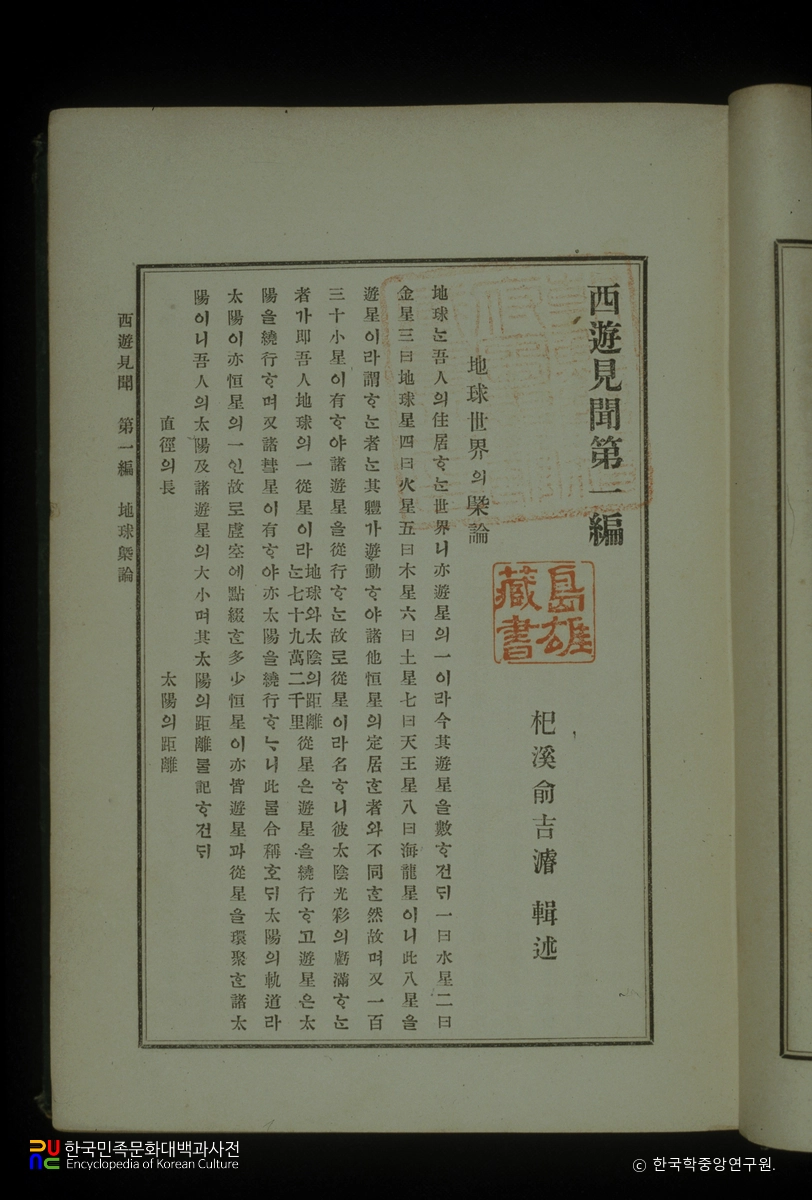 西遊見聞第一編
杞溪兪吉濬 輯述
地球世界의槩論
地球ᄂᆞᆫ吾人의住居ᄒᆞᄂᆞᆫ世界니亦遊星의一이라今其遊星을數ᄒᆞ건ᄃᆡ一曰水星二曰
金星三曰地球星四曰火星五曰木星六曰土星七曰天王星八曰海龍星이니此八星을
遊星이라謂ᄒᆞᄂᆞᆫ者ᄂᆞᆫ其軆가遊動ᄒᆞ야諸他恒星의定居ᄒᆞᆫ者와不同ᄒᆞᆫ然故며又一百
三十小星이有ᄒᆞ야諸遊星을從行ᄒᆞᄂᆞᆫ故로從星이라名ᄒᆞ니彼太陰光彩의虧滿ᄒᆞᄂᆞᆫ
者가即吾人地球의一從星이라地球와太陰의距離ᄂᆞᆫ七十九萬二千里從星은遊星을繞行ᄒᆞ고遊星은太
陽을繞行ᄒᆞ며又諸彗星이有ᄒᆞ야亦太陽을繞行ᄒᆞᄂᆞ니此ᄅᆞᆯ合稱호ᄃᆡ太陽의軌道라
太陽이亦恒星의一인故로虛空에點綴ᄒᆞᆫ多少恒星이亦皆遊星과從星을環聚ᄒᆞᆫ諸太
陽이니吾人의太陽及諸遊星의大小며其太陽의距離ᄅᆞᆯ記ᄒᆞ건ᄃᆡ
直徑의長 太陽의距離
西遊見聞 第一編 地球槩論
島雄
藏書
한국민족문화대백과사전
Encyclopedia of Korean Culture
ⓒ 한국학중앙연구원.